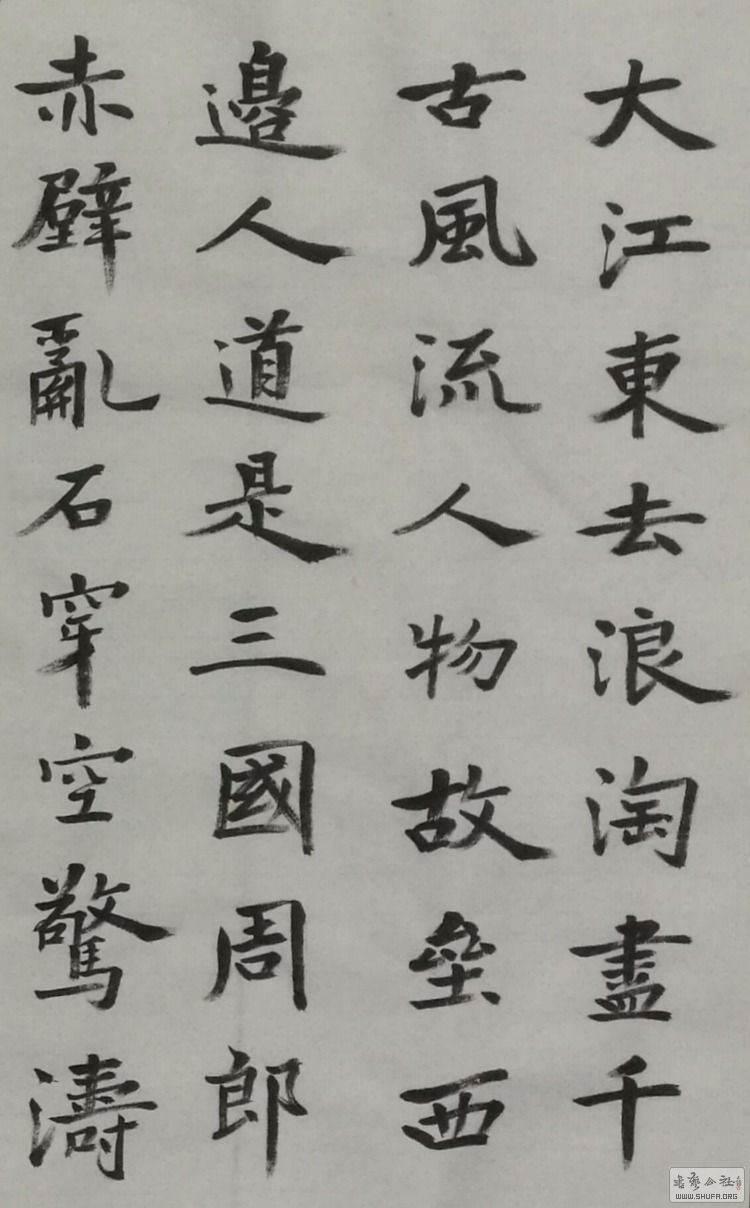 大江東去浪淘盡千
古風流人物故壘西
邊人道是三國周郎
赤壁亂石穿空驚濤
WWW.SHUFA.ORG